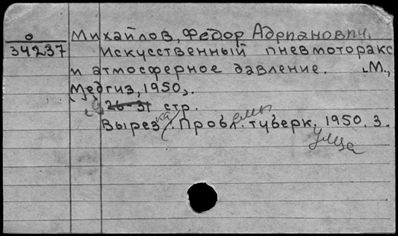 о Михайлов, Фёдор Адрианович.
34237 Искусственный пневмоторакс
и атмосферное давление. М.,
Медгиз, 1950.
26-31 стр.
Вырезка: Проблемы туберк. 1950. 3.